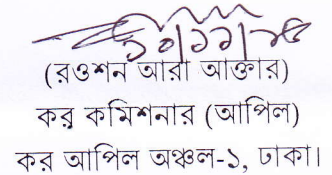 (রওশন আরা আক্তার)
কর কমিশনার (আপিল)
কর আপিল অঞ্চল-১, ঢাকা।